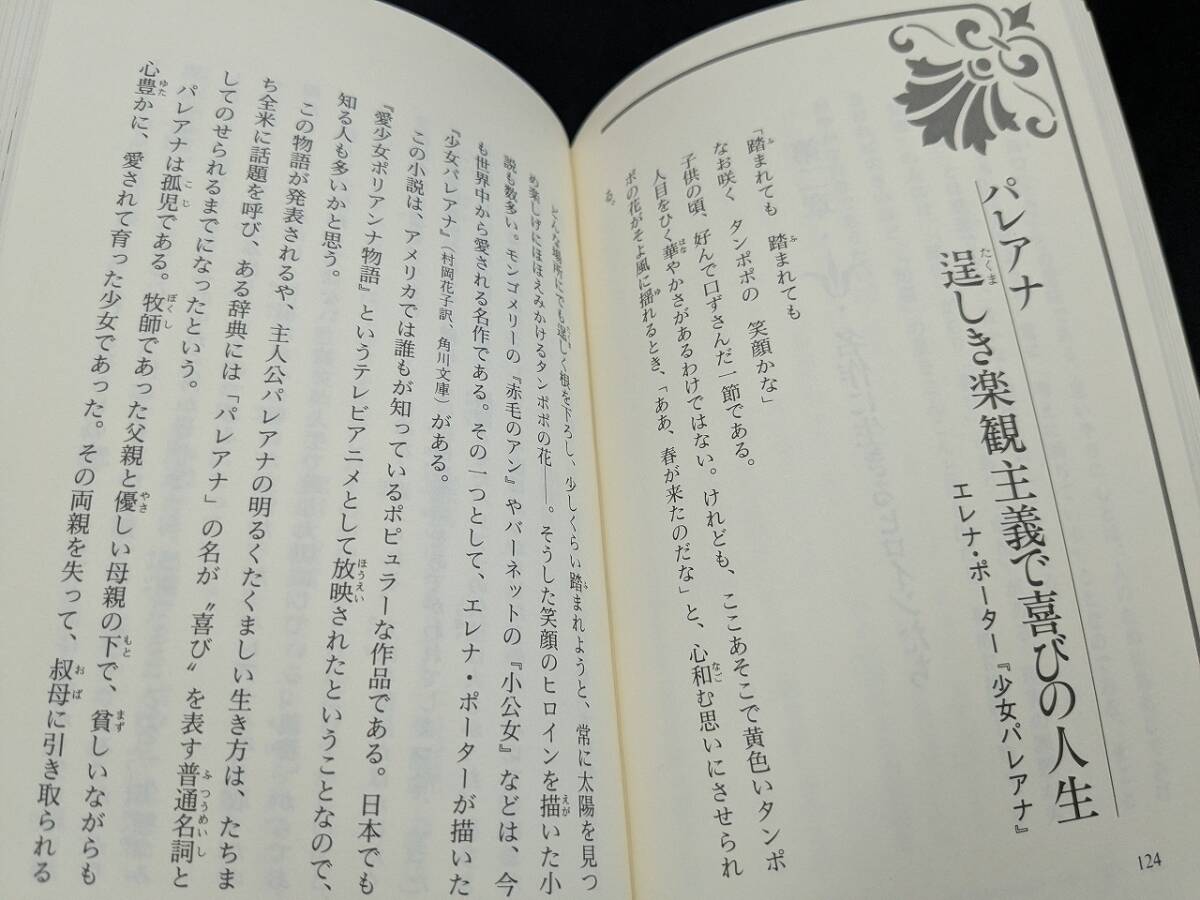 パレアナ
逞しき楽観主義で喜びの人生
エレナ・ポーター『少女パレアナ』
「踏まれても　踏まれても
なお咲く　タンポポの　笑顔かな」
子供の頃、好んで口ずさんだ一節である。
人目をひく華やかさがあるわけではない。けれども、ここあそこで黄色いタンポ
ポの花がそよ風に揺れるとき、「ああ、春が来たのだな」と、心和む思いにさせられ
る。
124
どんな場所にでも逞しく根を下ろし、少しくらい踏まれようと、常に太陽を見つ
め楽しげにほほえみかけるタンポポの花――。そうした笑顔のヒロインを描いた小
説も数多い。モンゴメリーの『赤毛のアン』やバーネットの『小公女』などは、今
も世界中から愛される名作である。その一つとして、エレナ・ポーターが描いた
『少女パレアナ』（村岡花子訳、角川文庫）がある。
この小説は、アメリカでは誰もが知っているポピュラーな作品である。日本でも
『愛少女ポリアンナ物語』というテレビアニメとして放映されたということなので、
知る人も多いかと思う。
この物語が発表されるや、主人公パレアナの明るくたくましい生き方は、たちま
ち全米に話題を呼び、ある辞典には「パレアナ」の名が〝喜び〟を表す普通名詞と
してのせられるまでになったという。
パレアナは孤児である。牧師であった父親と優しい母親の下で、貧しいながらも
心豊かに、愛されて育った少女であった。その両親を失って、叔母に引き取られる